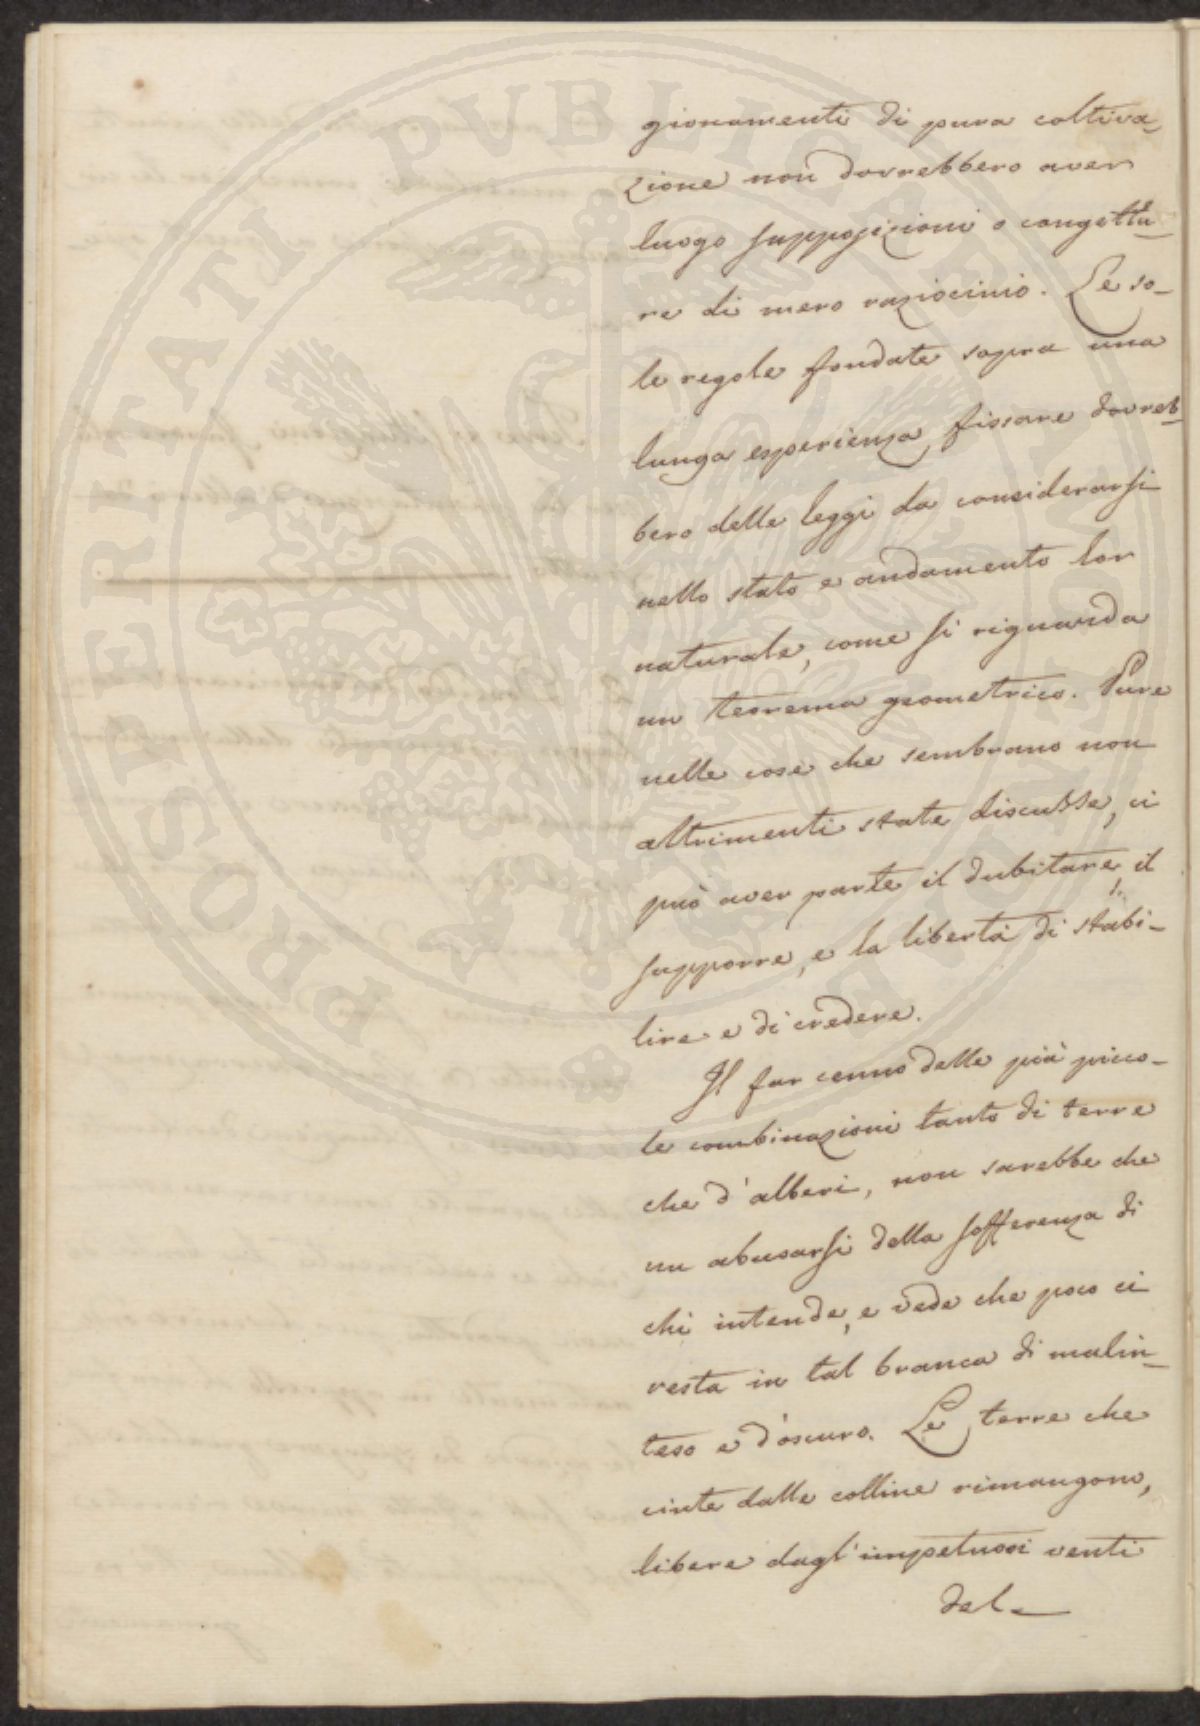 PROSPERITATI PUBLICAE AUGENDAE
gionamenti di pura coltiva-
zione non dovrebbero aver
luogo supposizioni o congettu-
re di mero raziocinio. Le so-
le regole fondate sopra una
lunga esperienza, fissare dovreb-
bero delle leggi da considerarsi
nello stato e andamento lor
naturale, come si riguarda
un teorema geometrico. Pure
nelle cose che sembrano non
altrimenti state discusse, ci
può aver parte il dubitare, il
supporre, e la libertà di stabi-
lire e di credere.
Il far cenno delle più picco-
le combinazioni tanto di terre
che d'alberi, non sarebbe che
un abusarsi della sofferenza di
chi intende, e vede che poco ci
resta in tal branca di malin-
teso e d'oscuro. Le terre che
cinte dalle colline rimangono,
libere dagl'impetuosi venti
del-